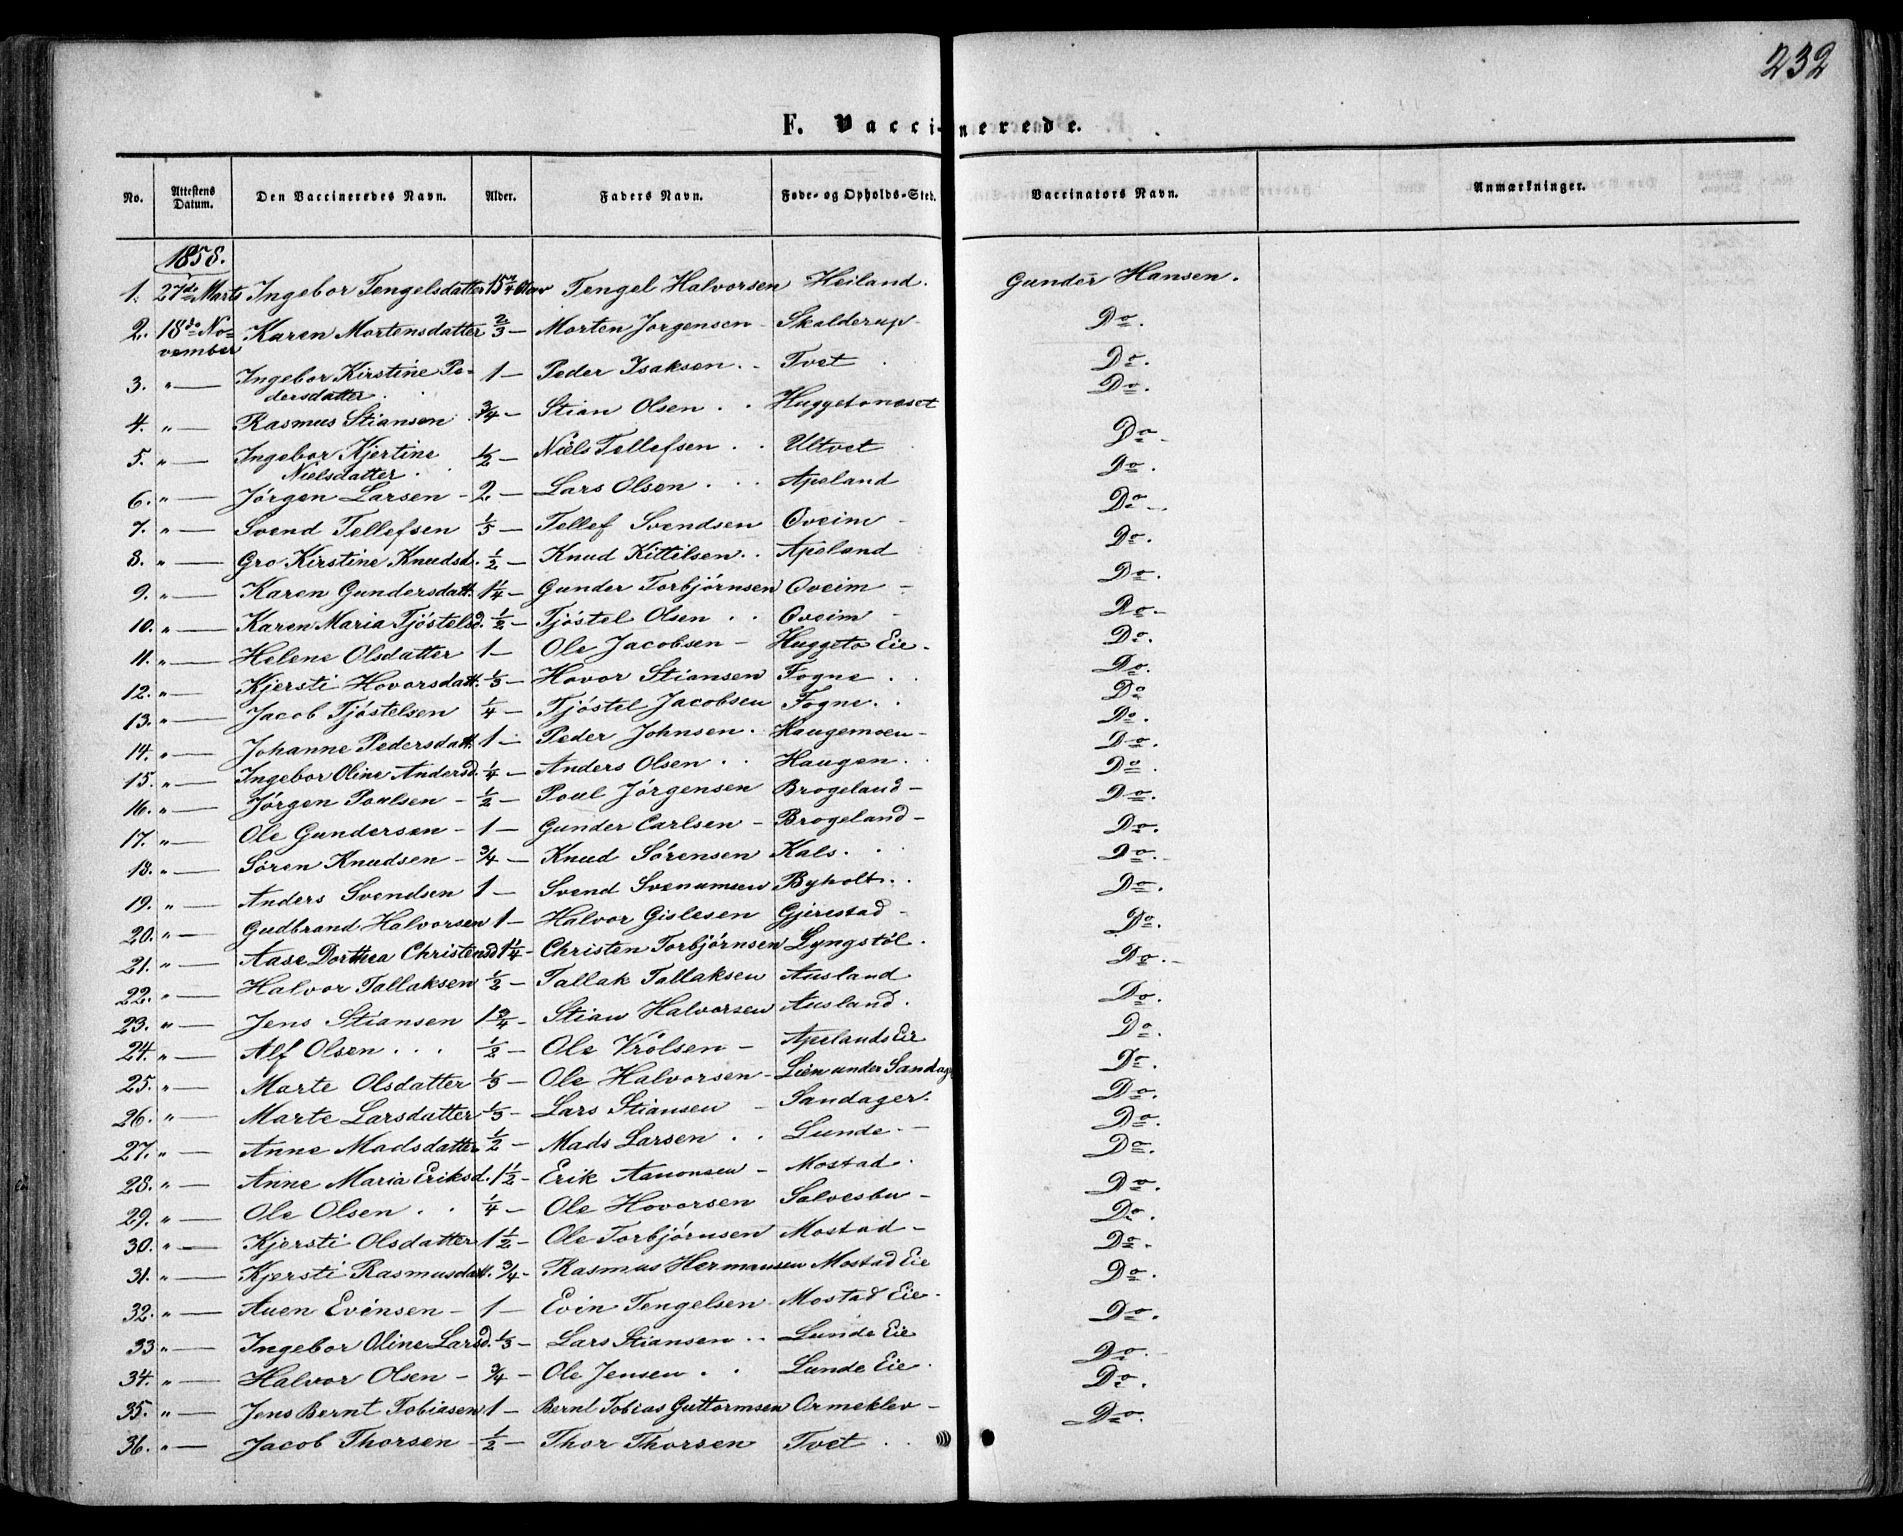 232
F. Vaccinerede.
No. Attestens Datum. Den Vaccineredes Navn. Alder. Faders Navn. Føde- og Opholds-Sted. Vaccinators Navn. Anmærkninger.
1858.
1. 27de Marts Ingebor Tengelsdatter 15 3/4 Tengel Halvorsen Heiland. Gunder Hansen.
2. 18de November Karen Mortensdatter 2/3 — Morten Jørgensen - Skalderup - Do.
3. " — Ingebor Kirstine Pedersdatter. 1 — Peder Isaksen. - Tvet Do.
4. " — Rasmus Stiansen 3/4 — Stian Olsen . . Huggetoneset Do.
5. " — Ingebor Kjertine Nielsdatter. 1/2 — Niels Tellefsen . . Ultvet Do.
6. " — Jørgen Larsen - 2 — Lars Olsen . . . Apeland Do.
7. " — Svend Tellefsen 1/5 — Tellef Svendsen Oveim - Do.
8. " — Gro Kirstine Knudsd. 1/2 — Knud Kittilsen. . Apeland Do.
9. " — Karen Gundersdatt. 1 1/4 — Gunder Torbjørnsen Oveim - Do.
10. " — Karen Maria Tjøstelsd. 1/2 — Tjøstel Olsen . . Oveim - Do.
11. " — Helene Olsdatter 1 — Ole Jacobsen - Huggeto Eie. Do.
12. " — Kjersti Hovorsdatt. 1/3 — Hovor Stiansen Fogne . . Do.
13. " — Jacob Tjøstelsen 1/4 — Tjøstel Jacobsen Fogne. . Do.
14. " — Johanne Pedersdatt. 1 — Peder Johnsen. Haugemoen - Do.
15. " — Ingebor Oline Andersd. 1/4 — Anders Olsen . . Haugen. . Do.
16. " — Jørgen Poulsen - 1/2 — Poul Jørgensen Brogeland - Do.
17. " — Ole Gundersen - 1 — Gunder Carlsen - Brogeland - Do.
18. " — Søren Knudsen - 3/4 — Knud Sørensen Kals. . Do.
19. " — Anders Svendsen 1 — Svend Svenumsen Byholt. . Do.
20. " — Gudbrand Halvorsen 1 — Halvor Gislesen Gjerestad - Do.
21. " — Aase Dorthea Christensd 1 1/4 - Christen Torbjørnsen Lyngstøl. Do.
22. " — Halvor Tallaksen 1/2 — Tallak Tallaksen Ausland Do.
23. " — Jens Stiansen 1 3/4 - Stian Halvorsen Ausland. Do.
24. " — Alf Olsen . . . 1/2 — Ole Vrolsen - Apelands Eie Do.
25. " — Marte Olsdatter 1/3 — Ole Halvorsen - Lien under Sandager Do.
26. " — Marte Larsdatter 1/3 — Lars Stiansen - Sandager. Do.
27. " — Anne Madsdatter 1/2 — Mads Larsen . . Lunde. - Do.
28. " — Anne Maria Eriksd. 1 1/2 - Erik Aanonsen - Mostad. Do.
29. " — Ole Olsen . . 1/4 — Ole Hovorsen Salvesbu - Do.
30. " — Kjersti Olsdatter 1 1/2 - Ole Torbjørnsen Mostad - Do.
31. " — Kjersti Rasmusdatt. 3/4 - Rasmus Hermansen Mostad Eie Do.
32. " — Auen Evensen - 1 — Evin Tengelsen - Mostad Eie. Do.
33 " — Ingebor Oline Larsd. 1/3 — Lars Stiansen . . Lunde Eie Do.
34. " — Halvor Olsen - 3/4 — Ole Jensen . . Lunde Eie. Do.
35. " — Jens Bernt Tobiasen 1 — Bernt Tobias Guttormsen Ormeklev - Do.
36. " — Jacob Thorsen 1/2 — Thor Thorsen Tvet . .